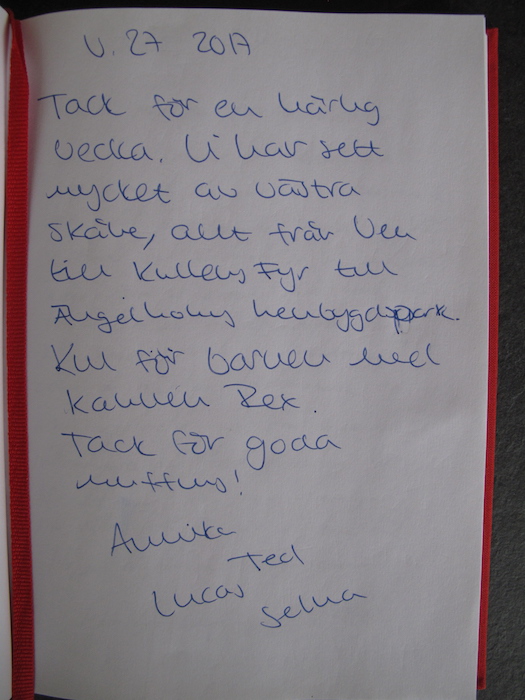 V. 27 2017
Tack för en härlig
vecka. Vi har sett
mycket av västra
Skåne, allt från Ven
till Kullens Fyr till
Ängelholms hembygdspark.
Kul för barnen med
kaninen Rex.
Tack för goda
muffins!
Annika
Ted
Lucas
Selma